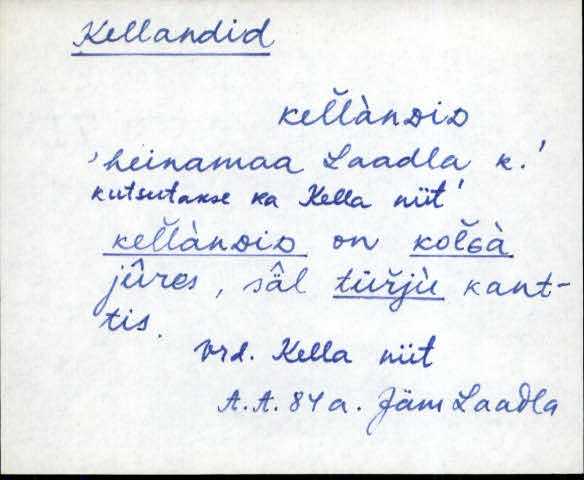 Kellandid
kel̆làndid
'heinamaa Laadla k.'
kutsutakse ka Kella niit'
kel̆làndid on kol̆Gà
jûres, sâl tür̆jù kant-
tis.
Vrd. Kella niit
A.A. 84 a. Jäm Laadla